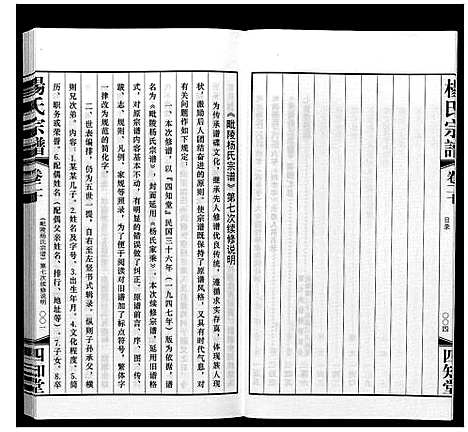 楊氏宗譜
卷二十
目录
〇〇四
四知堂
《毗陵杨氏宗谱》第七次续修说明
为传承谱碟文化，继承先人修谱优良传统，遵循求实存真，体现族人现
状，激励后人团结奋进的原则，使宗谱既保持了原谱风格，又具有时代气息，对
有关问题作如下规定：
一、本次修谱，以『四知堂』民国三十六年（一九四七年）版为依据，谱
名为《毗陵杨氏宗谱》，封面延用《杨氏家乘》，本次续修宗谱，延用旧谱格
式，对原宗谱内容基本不动，有明显的错误做了纠正。原谱前言、序、图、传、
跋、志、规则、凡例、家规等照录，为了便于阅读对旧谱加了标点符号，繁体字
一律改为规范的简化字。
二、世表编排，仍为五世一提，自右至左竖书式辑录，纵则子孙承父，横
则兄次弟。内容：1.某某几子。2.姓名及字号。3.出生年月。4.文化程度。5.简
历、职务或荣誉。6.配偶姓名（配偶父亲姓名、排行、地址等）。7.子女。8.卒
楊氏宗譜
卷二十
《毗陵杨氏宗谱》第七次续修说明
〇〇一
四知堂